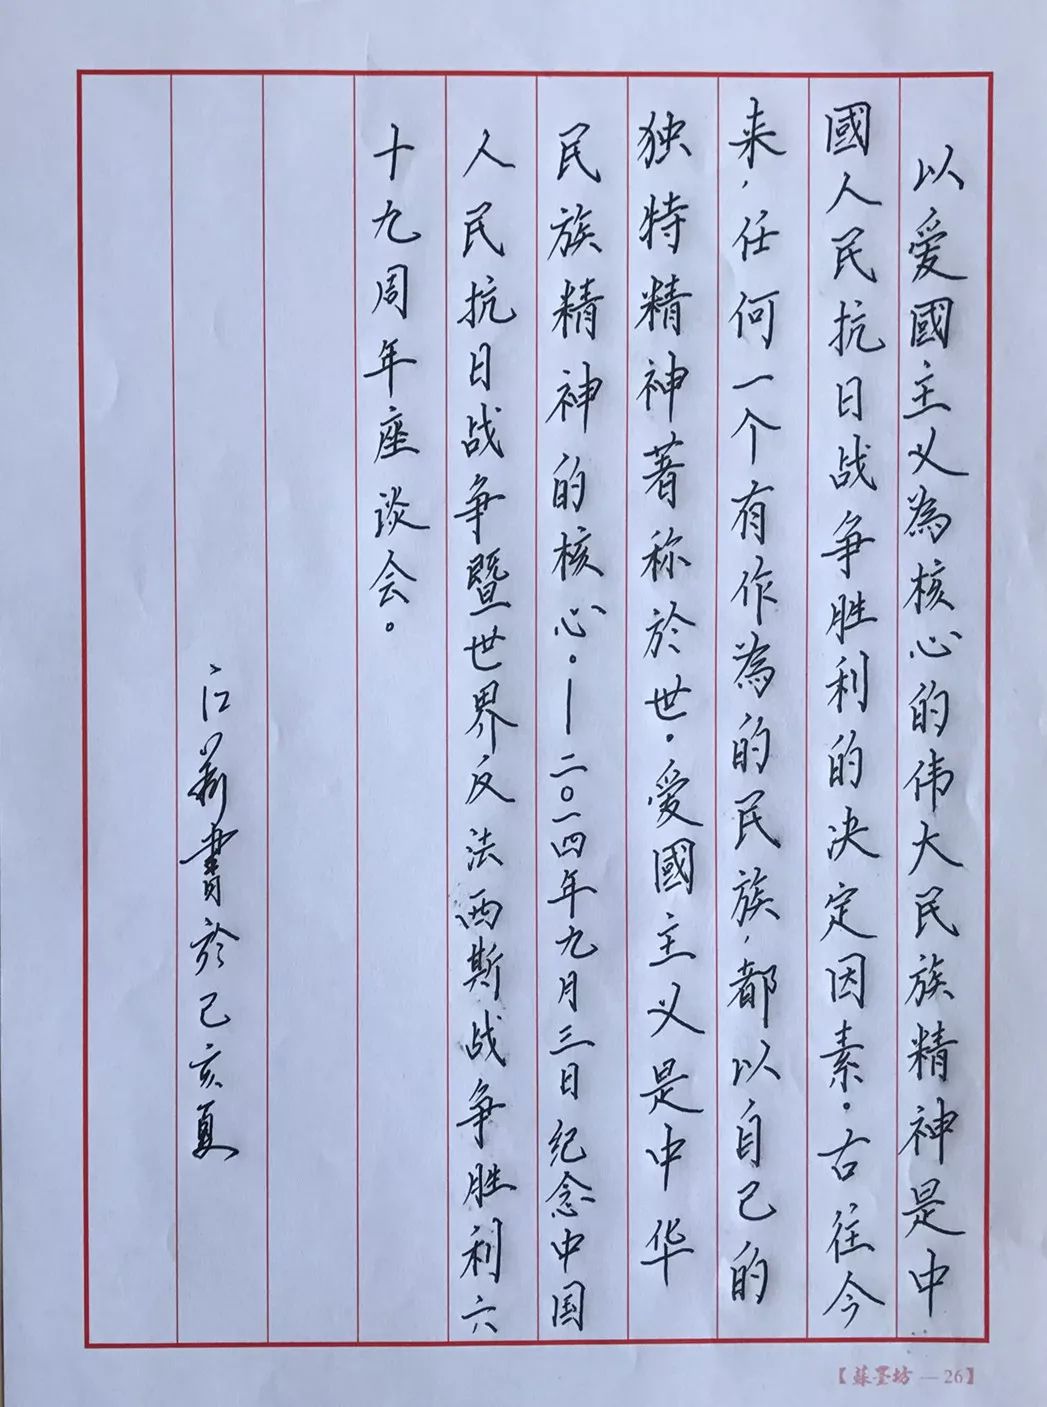 以爱國主义為核心的伟大民族精神是中
國人民抗日战争胜利的决定因素。古往今
来，任何一个有作為的民族，都以自己的
独特精神著称於世。爱國主义是中华
民族精神的核心。—二〇一四年九月三日纪念中国
人民抗日战争暨世界反法西斯战争胜利六
十九周年座谈会。
書於己亥夏
【蘇墨坊—26】